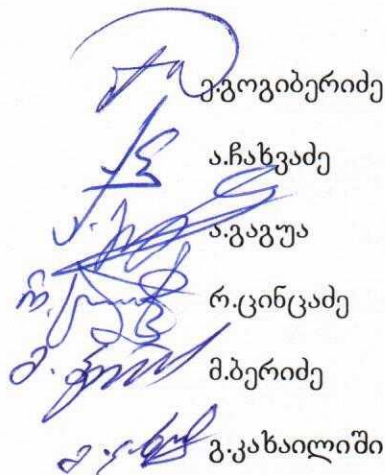 ე.გოგიბერიძე
ა.ჩახვაძე
ა.გაგუა
რ.ცინცაძე
მ.ბერიძე
გ.კახაილიში